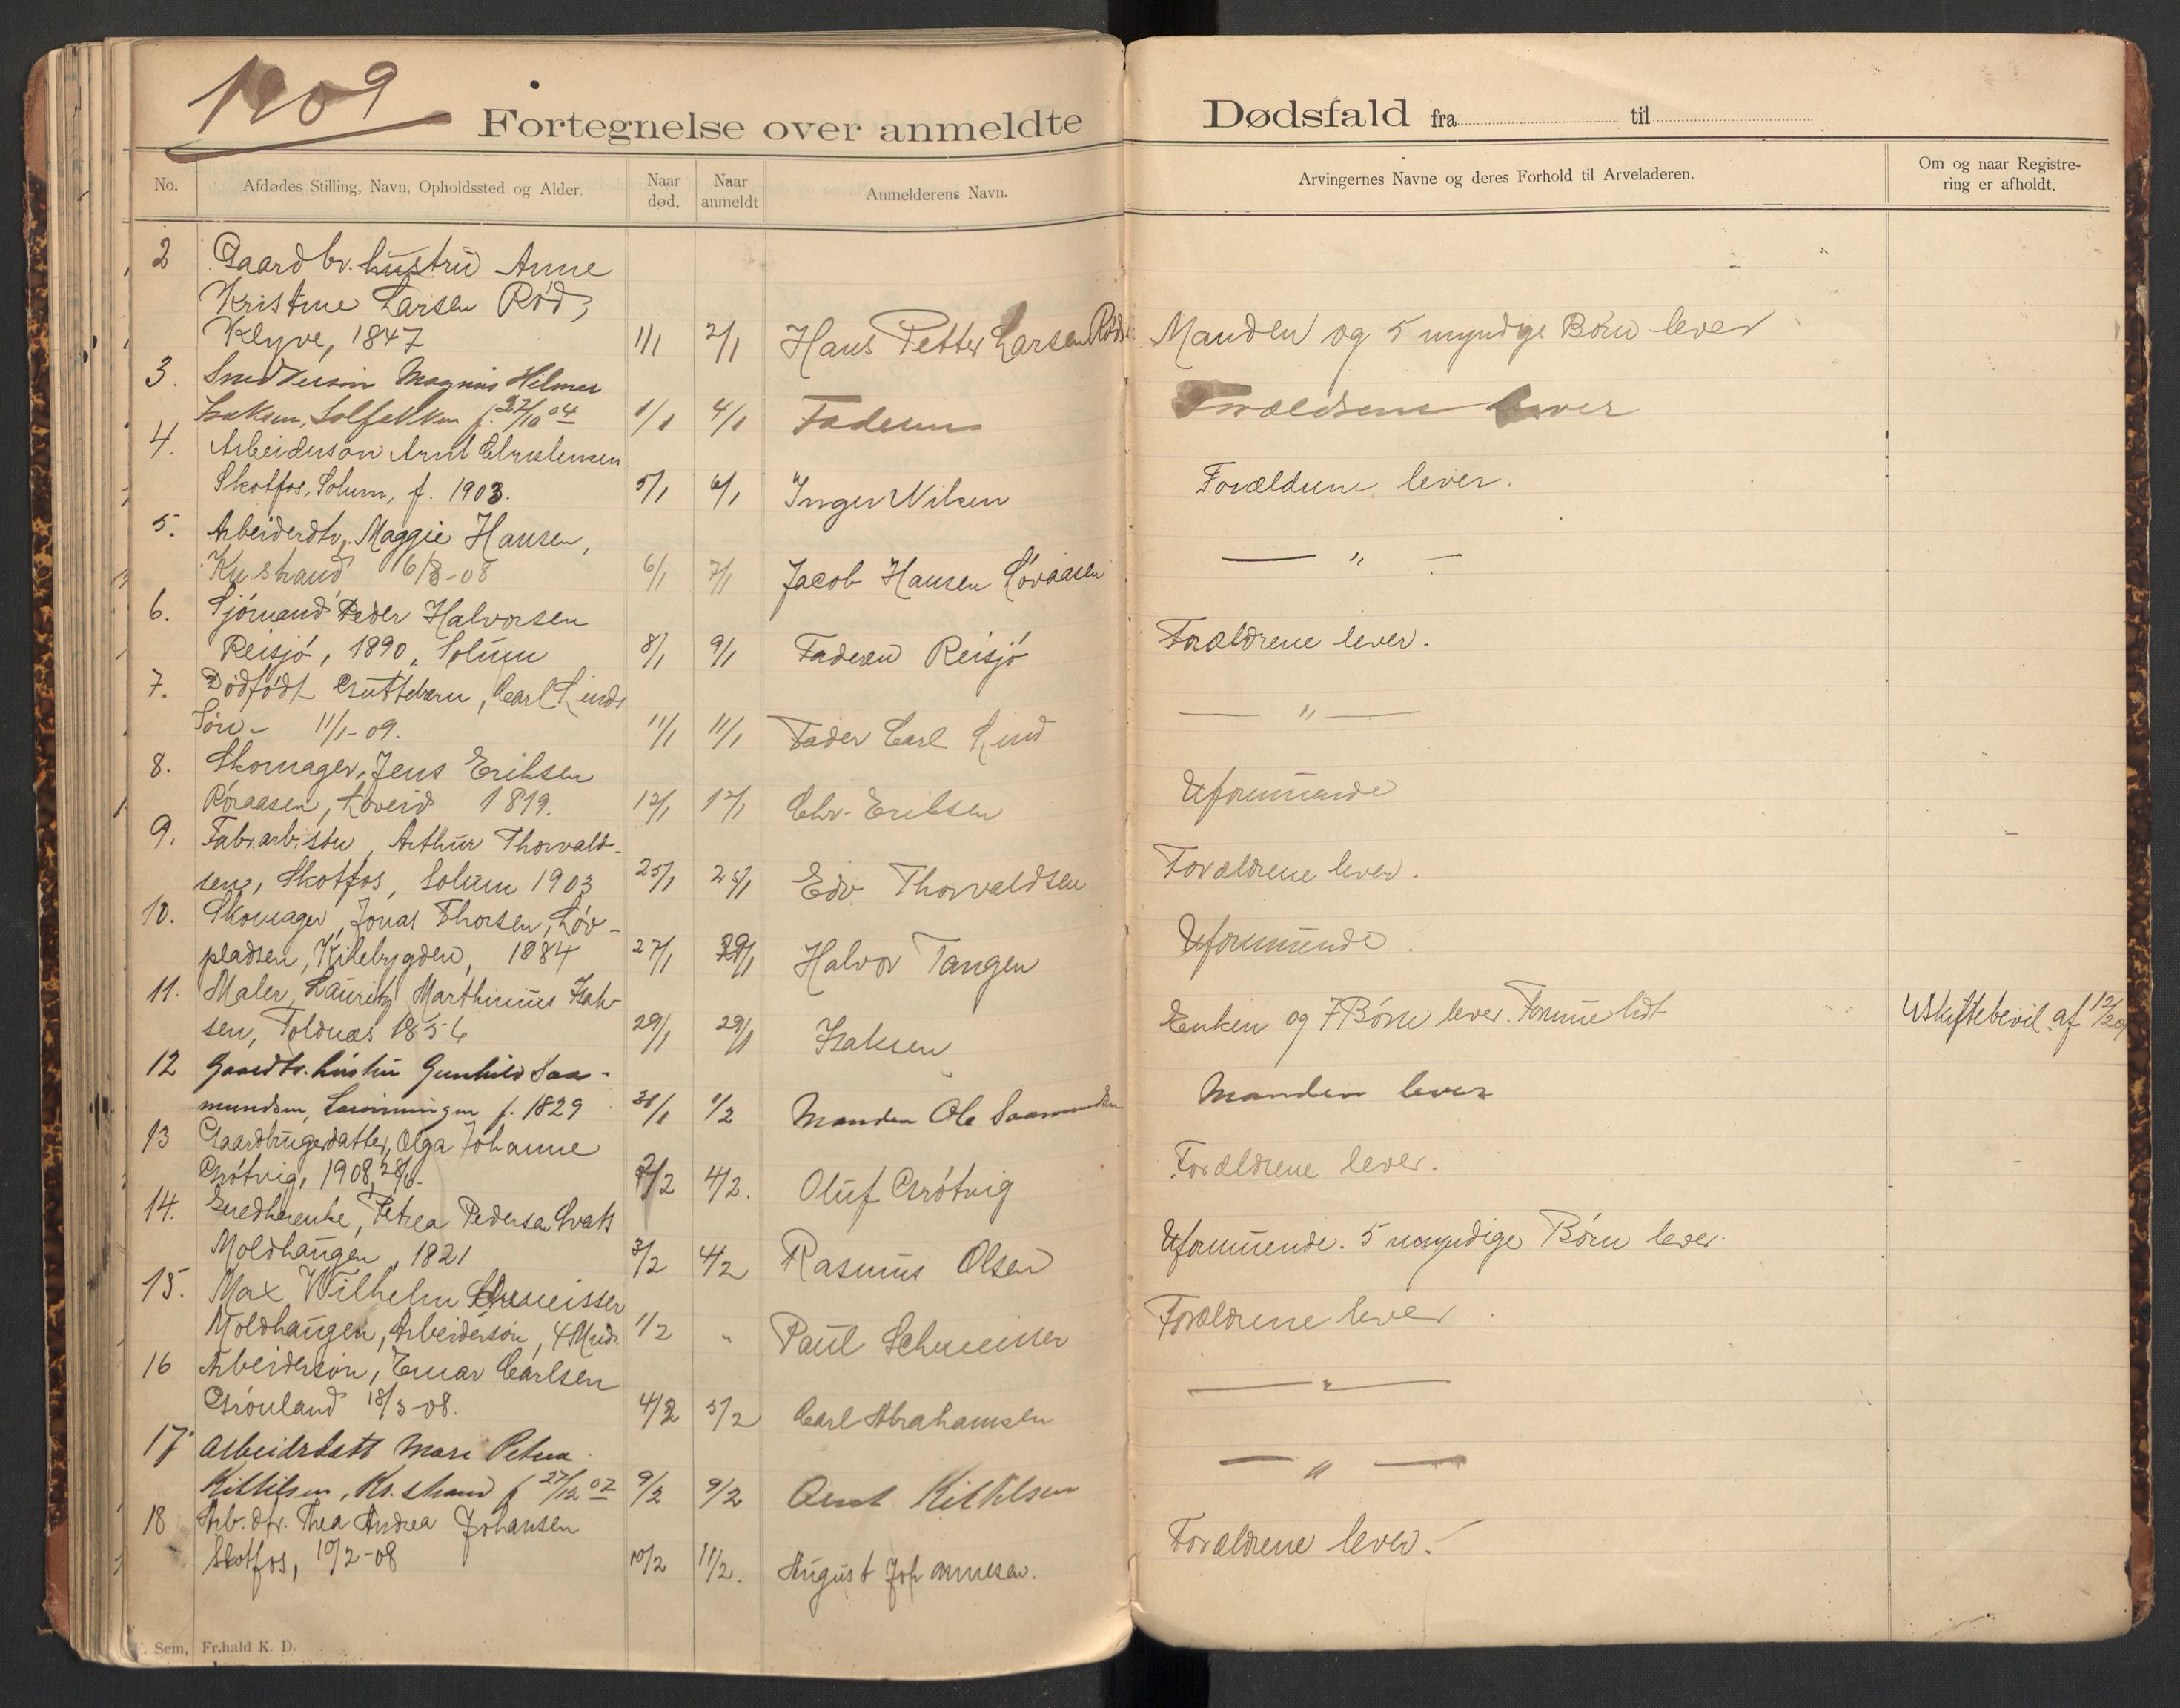 1909
Fortegnelse over anmeldte Dødsfald fra til
No. Afdødes Stilling, Navn, Opholdssted og Alder. Naar død. Naar anmeldt Anmelderens Navn. Arvingernes Navne og deres Forhold til Arveladeren. Om og naar Registrering er afholdt.
2 Gaardbr. hustru Anne
Kristine Larsen Rød,
Klyve, 1847 1/1 2/1 Hans Petter Larsen Rød Manden og 5 myndige Børn lever
3. Magnus Hilmer
f. 27/10 04 1/1 4/1 Faderen Forældrene lever
4. Arbeiderson Arnt Christensen
Skotfos, Solum, f. 1903. 5/1 6/1 Inger Nilsen Forældrene lever.
5. Arbeiderdtr. Maggie Hansen,
6/8-08 6/1 7/1 Jacob Hansen Løvaasen — " —
6. Sjømand Peder Halvorsen
Reisjø, 1890, Solum 8/1 9/1 Faderen Reisjø Forældrene lever.
7. Dødfødt Guttebarn, Carl Linds
Søn - 11/1-09. 11/1 11/1 Fader Carl Lind — " —
8. Skomager, Jens Eriksen
Røraasen, Løveid 1819. 12/1 12/1 Chr. Eriksen Uformuende
9. Fabr.arb. søn, Arthur Thorvald-
sen, Skotfos, Solum 1903 25/1 25/1 Edv. Thorvaldsen Forældrene lever.
10. Skomager, Jonas Thorsen, Løv-
pladsen, Kilebygden, 1884 27/1 29/1 Halvor Tangen Uformuende.
11. Maler, Lauritz Marthinius Isak-
sen, Toldnæs 1856 29/1 29/1 Isaksen Enken og 7 Børn lever. Formue lidt Uskiftebevil. af 12/2 09
12 Gaardbr. hustru Gunhild Saa-
mundsen, f. 1829 31/1 1/2 Manden Ole Saamundsen Manden lever
13 Gaardbrugerdatter, Olga Johanne
Grøtvig, 1908, 2/2 4/2. Oluf Grøtvig Forældrene lever.
14. Petrea Pedersen
Moldhaugen, 1821 3/2 4/2 Rasmus Olsen Uformuende. 5 myndige Børn lever.
15. Max Wilhelm Schmeisser
Moldhaugen, Arbeidersøn, 4 Mnd. 1/2 " Paul Schmeisser Forældrene lever
16 Arbeidersøn, Einar Carlsen
Grønland 18/3-08. 4/2 5/2 Carl Abrahamsen — " —
17 Arbeiderdatt Mari Petrea
Kittilsen, Kr. strand f 27/12 07 9/2 9/2 Arnt Kittilsen — " —
18 Arb. dtr. Thea Andrea Johansen
Skotfos, 10/2-08 10/2 11/2. August Johannesen. Forældrene lever.
Sem, Fr.hald K. D.